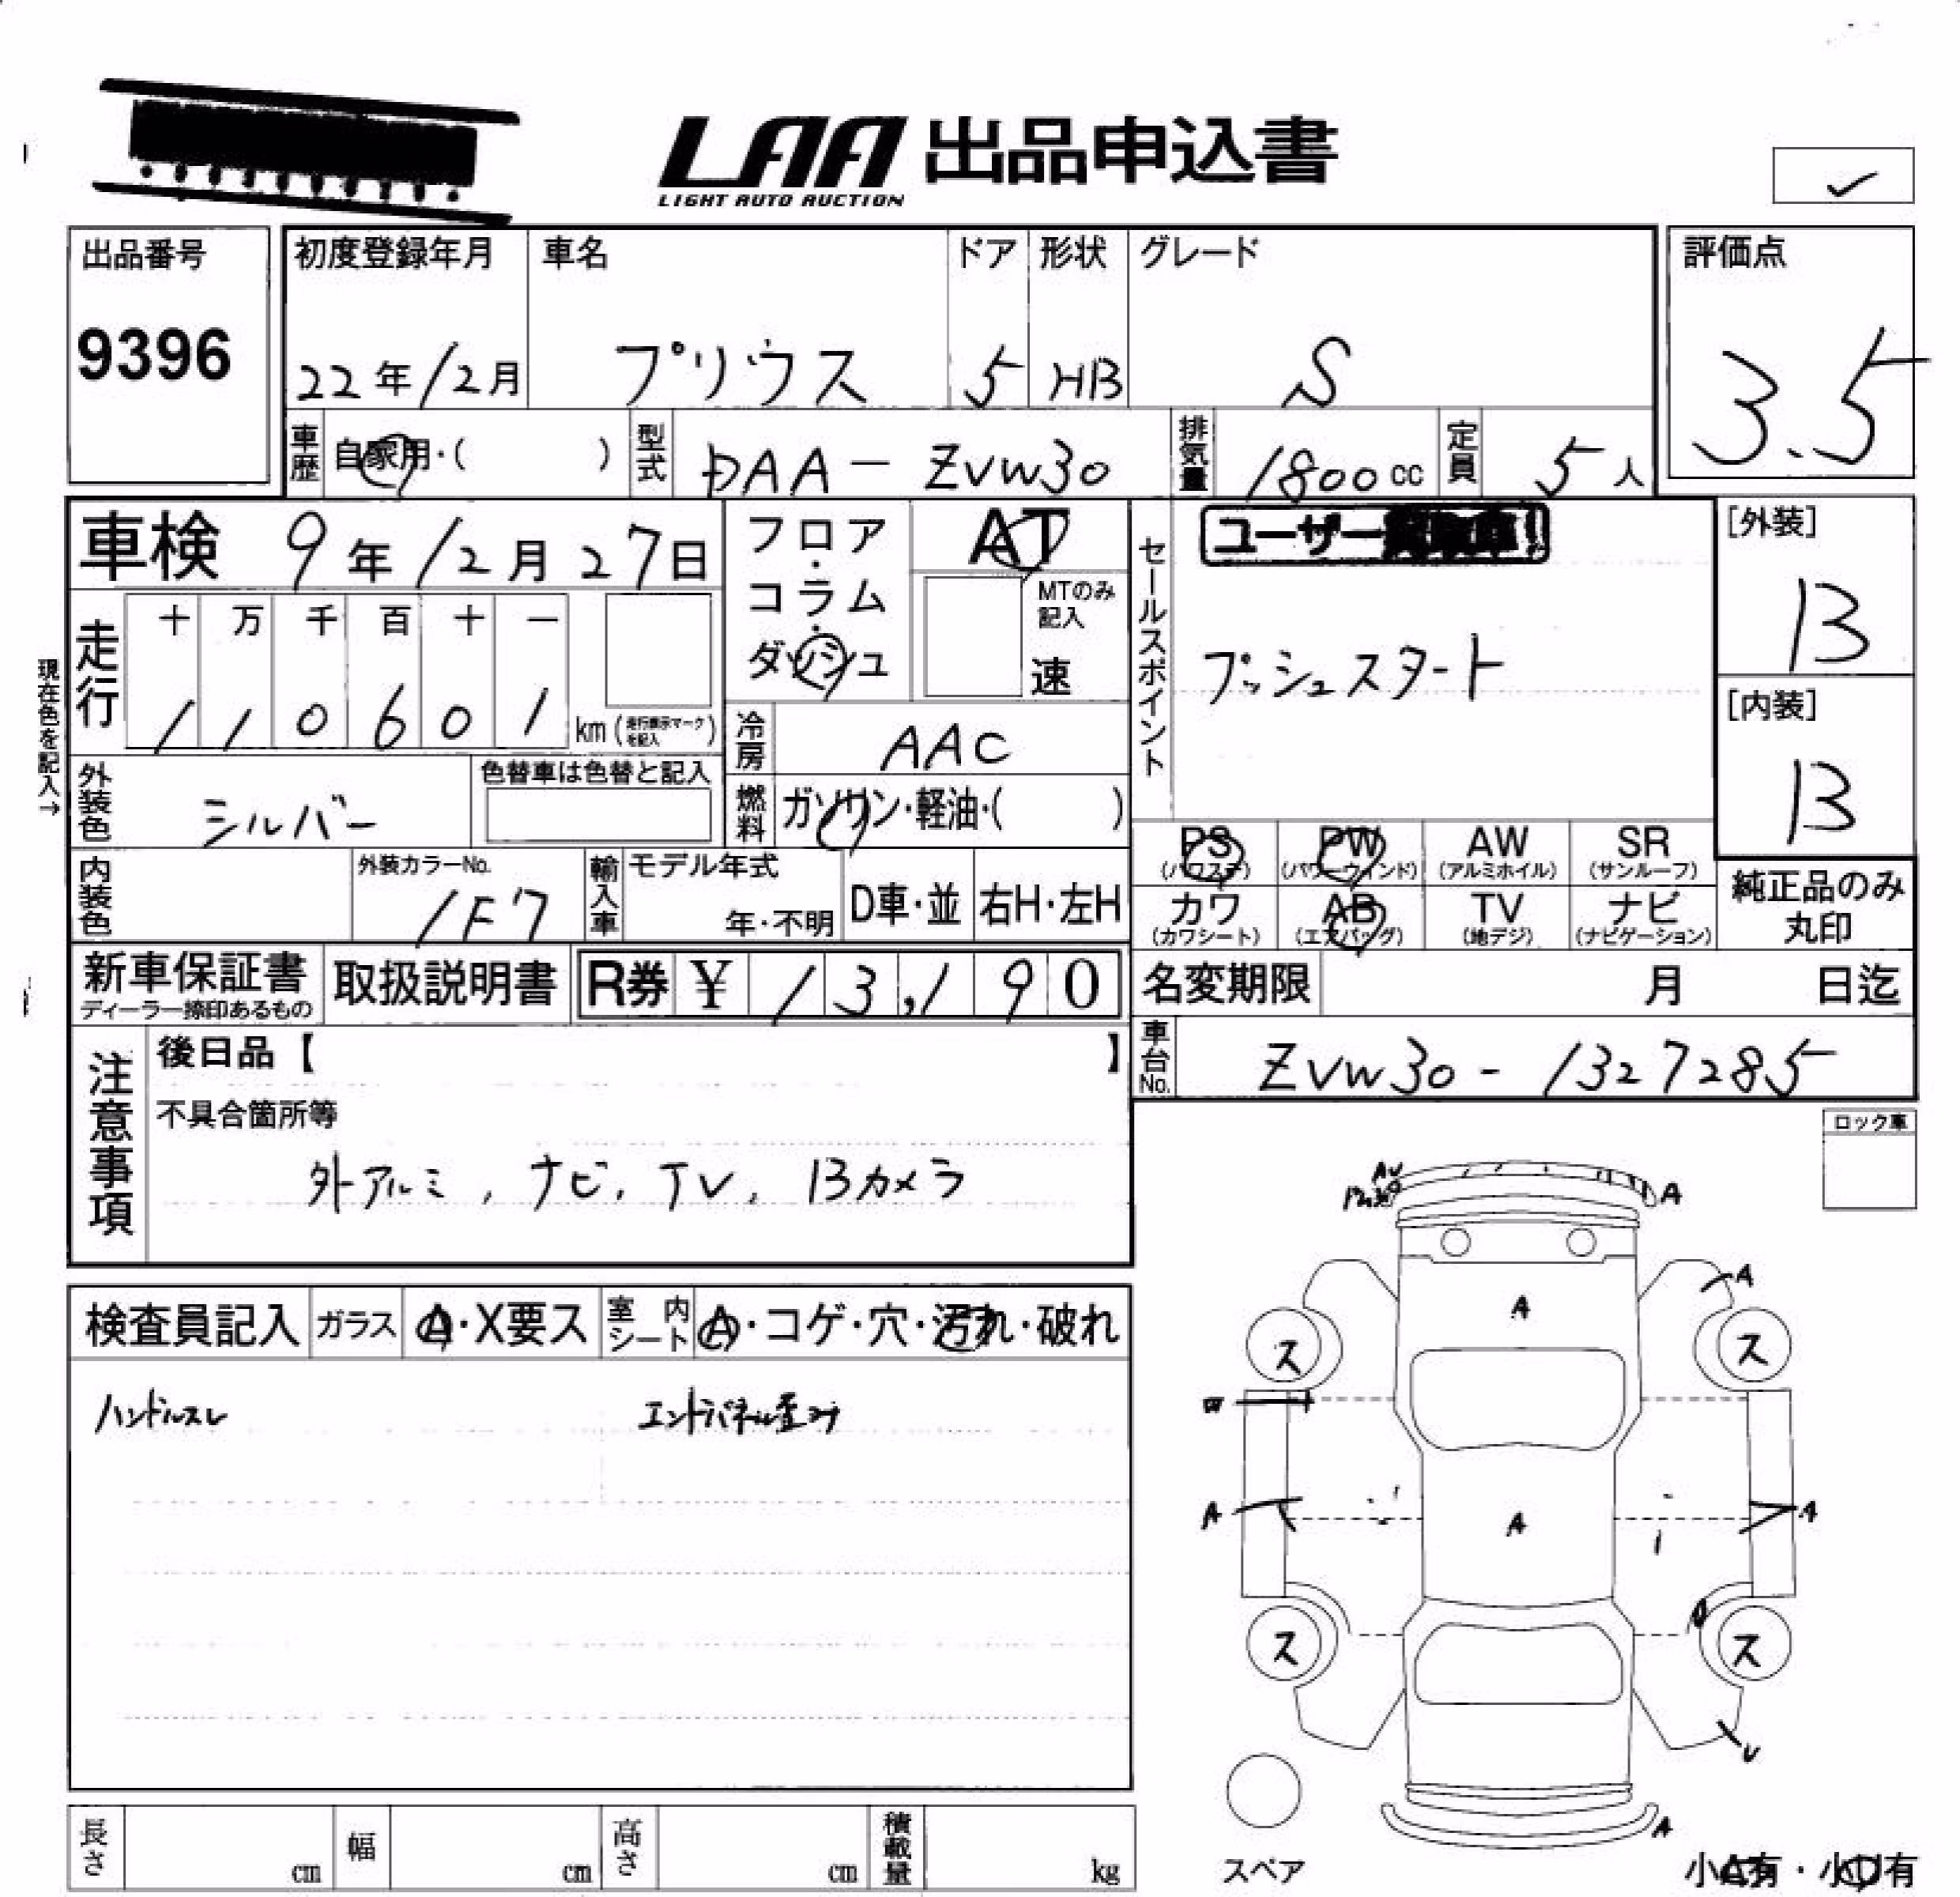 LAA 出品申込書
LIGHT AUTO AUCTION
出品番号
9396
初度登録年月
22年12月
車名
プリウス
ドア
5
形状
HB
グレード
S
評価点
3.5
車歴
自家用・( )
型式
DAA-ZVW30
排気量
1800cc
定員
5人
車検 9年12月27日
フロア・コラム・ダッシュ
AT
MTのみ記入
速
セールスポイント
ユーザー
プッシュスタート
[外装]
B
[内装]
B
現在色を記入→
走行
十 万 千 百 十 一
1 1 0 6 0 1
km(走行表示マークを記入)
冷房
AAC
外装色
シルバー
色替車は色替と記入
燃料
ガソリン・軽油・( )
PS (パワステ)
PW (パワーウインド)
AW (アルミホイル)
SR (サンルーフ)
カワ (カワシート)
AB (エアバッグ)
TV (地デジ)
ナビ (ナビゲーション)
純正品のみ丸印
内装色
外装カラーNo.
1F7
輸入車
モデル年式
年・不明
D車・並
右H・左H
新車保証書
ディーラー捺印あるもの
取扱説明書
R券 ¥ 13,190
名変期限 月 日迄
車台No.
ZVW30-1327285
注意事項
後日品【 】
不具合箇所等
外アルミ, ナビ, TV, Bカメラ
ロック車
検査員記入
ガラス
A・X要ス
室内シート
A・コゲ・穴・汚れ・破れ
ハンドルスレ
エンドパネル歪み
AU
A
A
A
ス
ス
W
A
A
A
ス
ス
U
A
スペア
長さ cm
幅 cm
高さ cm
積載量 kg
小A有・小U有